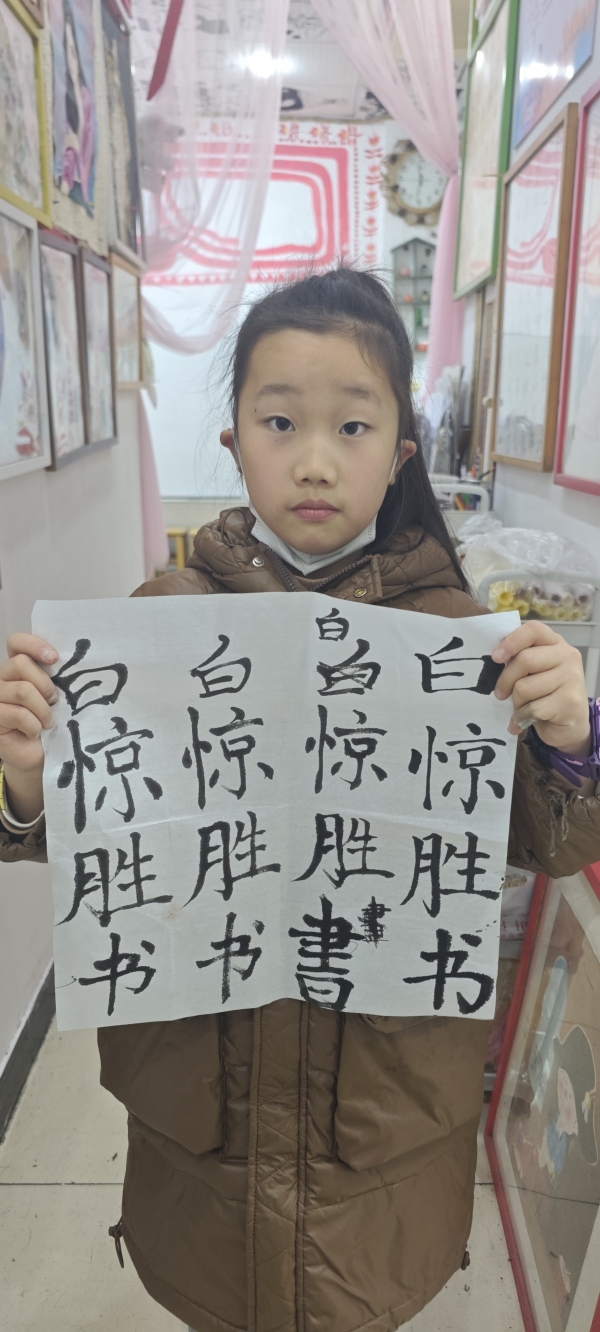 白惊胜书
白白惊胜書書
白惊胜书
白惊胜书